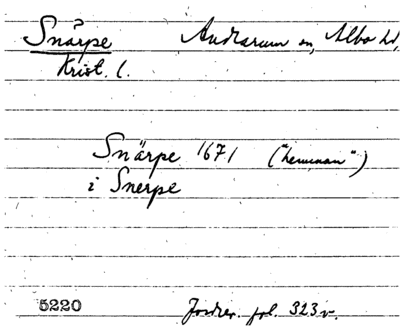 Snärpe Andrarum sn, Albo hd,
Krist. l.
Snärpe 1671 ("hemman")
i Snerpe
5220 Jordrev. fol. 323 v.